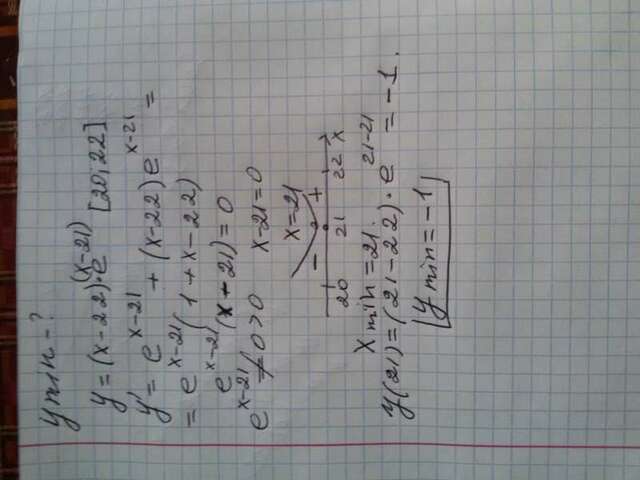 y min - ?
y = (x-22)·e^(x-21) [20, 22]
y' = e^x-21 + (x-22)e^x-21 =
= e^x-21 (1 + x - 22)
e^x-21 (x - 21) = 0
e^x-21 ≠ 0 > 0 x-21=0
x=21
- +
20 21 22 x
x min = 21.
y(21) = (21-22)·e^21-21 = -1.
y min = -1